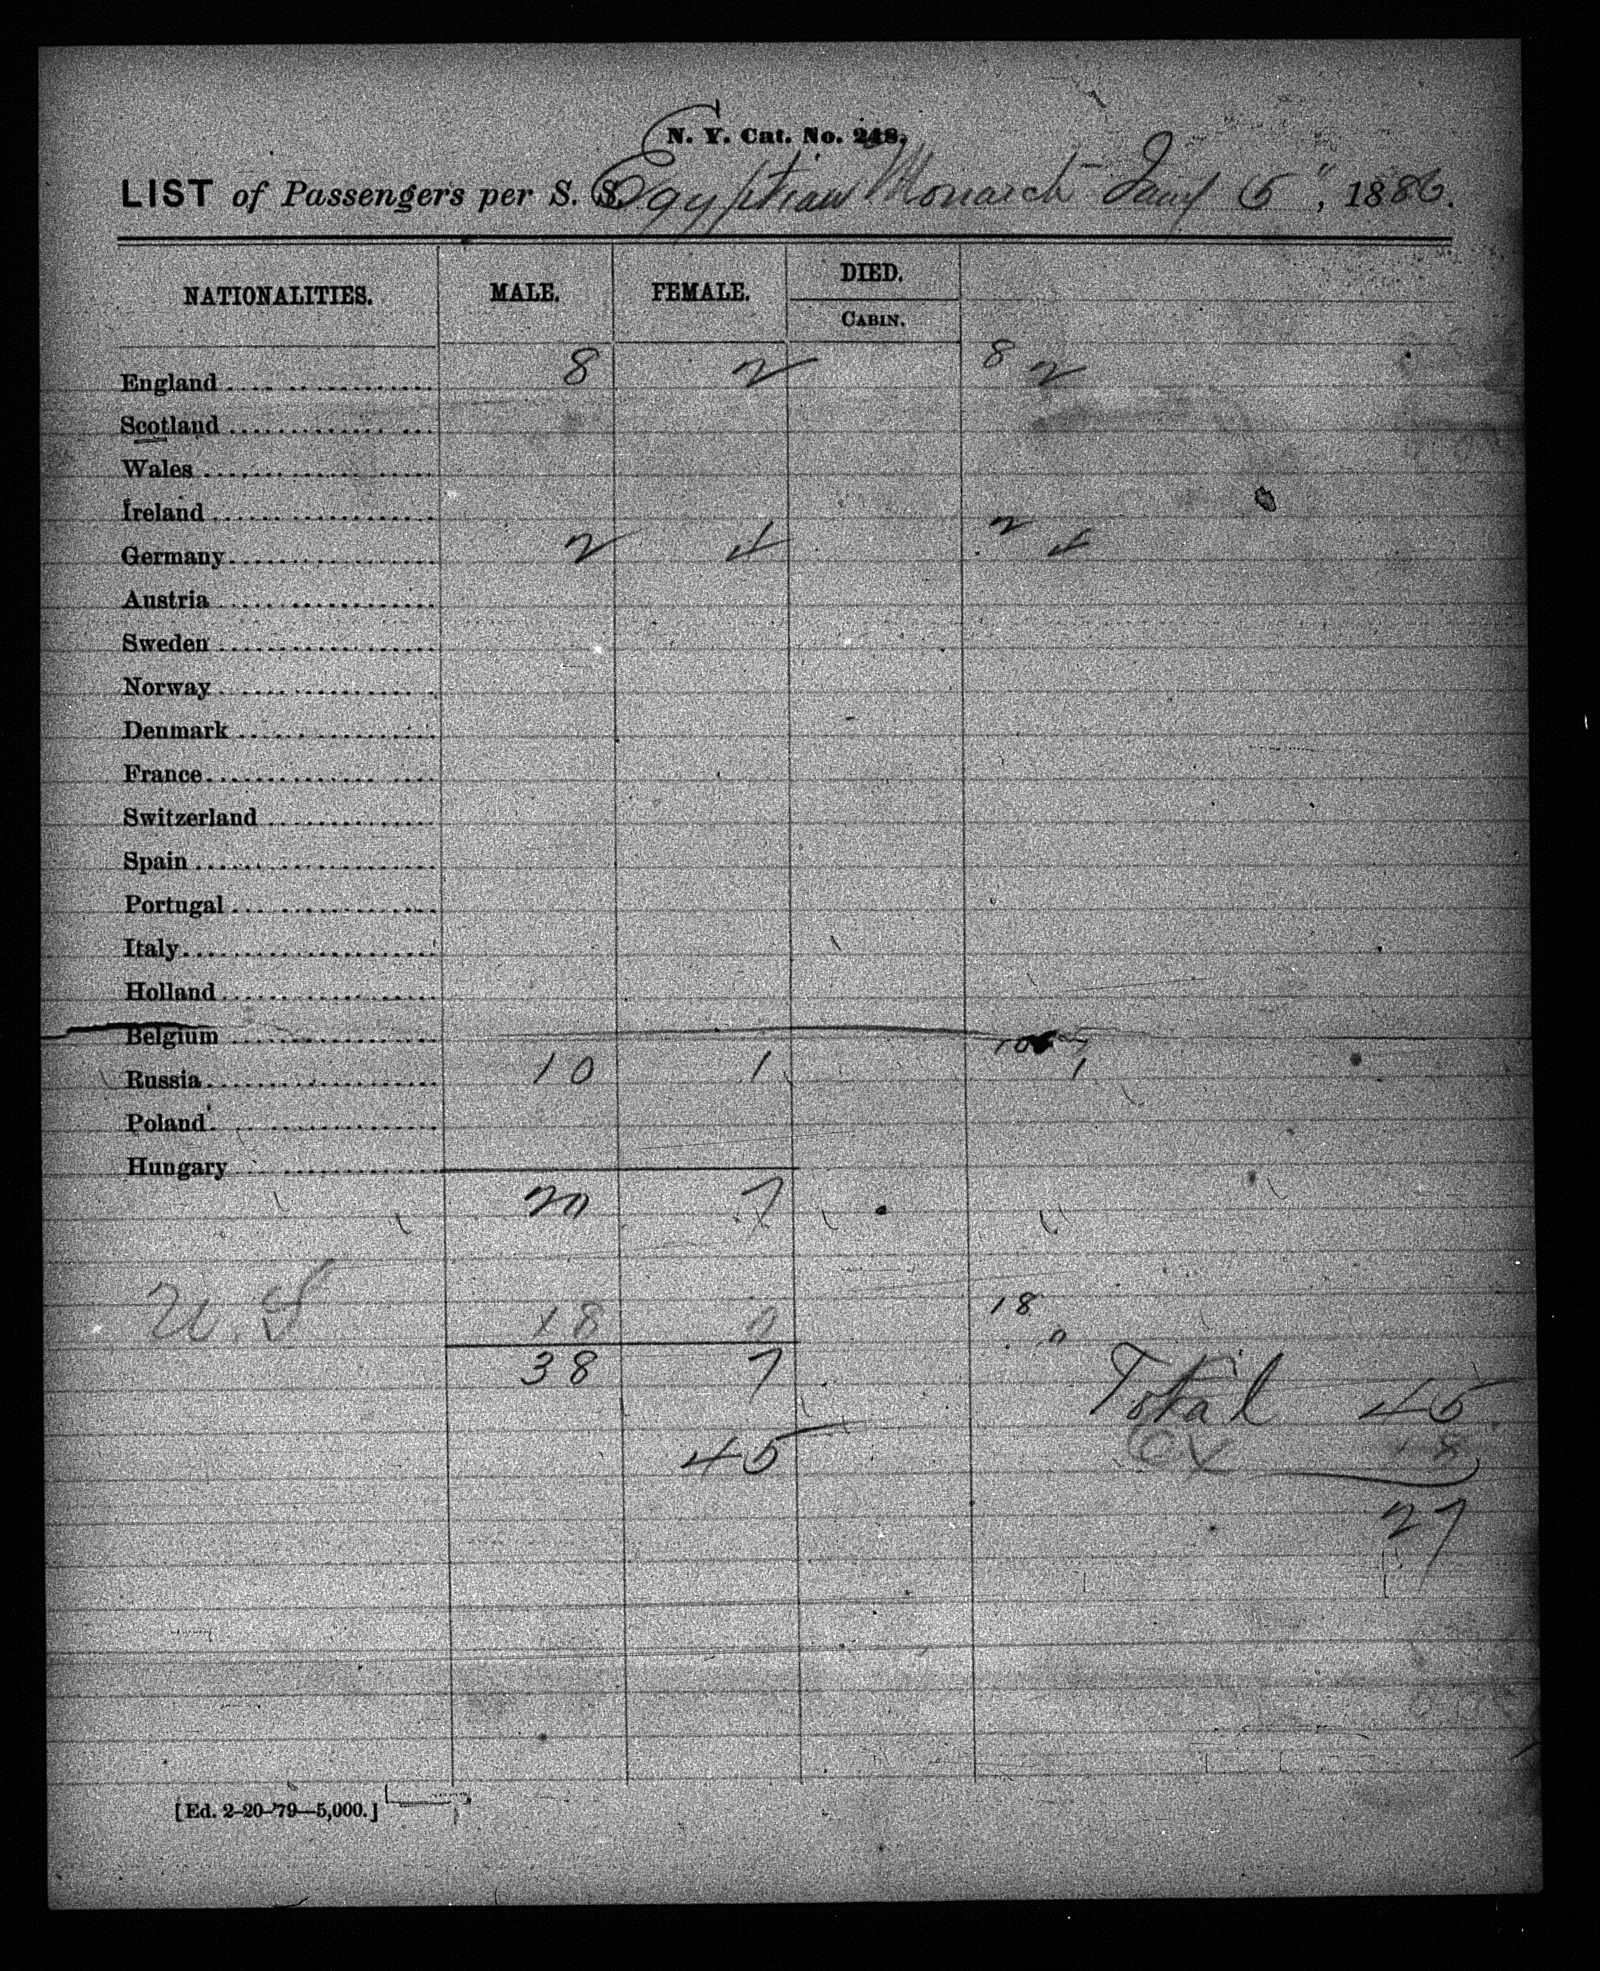 N. Y. Cat. No. 248.
LIST of Passengers per S. S. Egyptian Monarch Jany 5", 1886.
NATIONALITIES. MALE. FEMALE. DIED.
CABIN.
England 8 2 8 2
Scotland
Wales
Ireland
Germany 2 4 2 4
Austria
Sweden
Norway
Denmark
France
Switzerland
Spain
Portugal
Italy
Holland
Belgium
Russia 10 1 10 1
Poland
Hungary
20 7
U.S 18 0 18 0
38 7
Total 45
45
18
27
[Ed. 2-20-'79—5,000.]